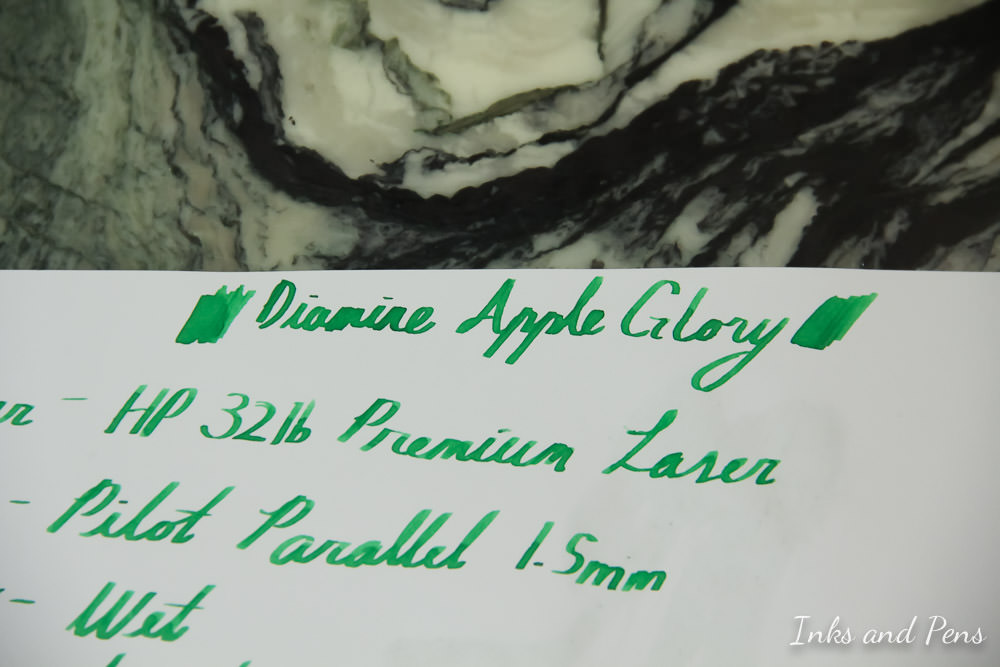 Diamine Apple Glory
- HP 32lb Premium Laser
- Pilot Parallel 1.5mm
- Wet
Inks and Pens